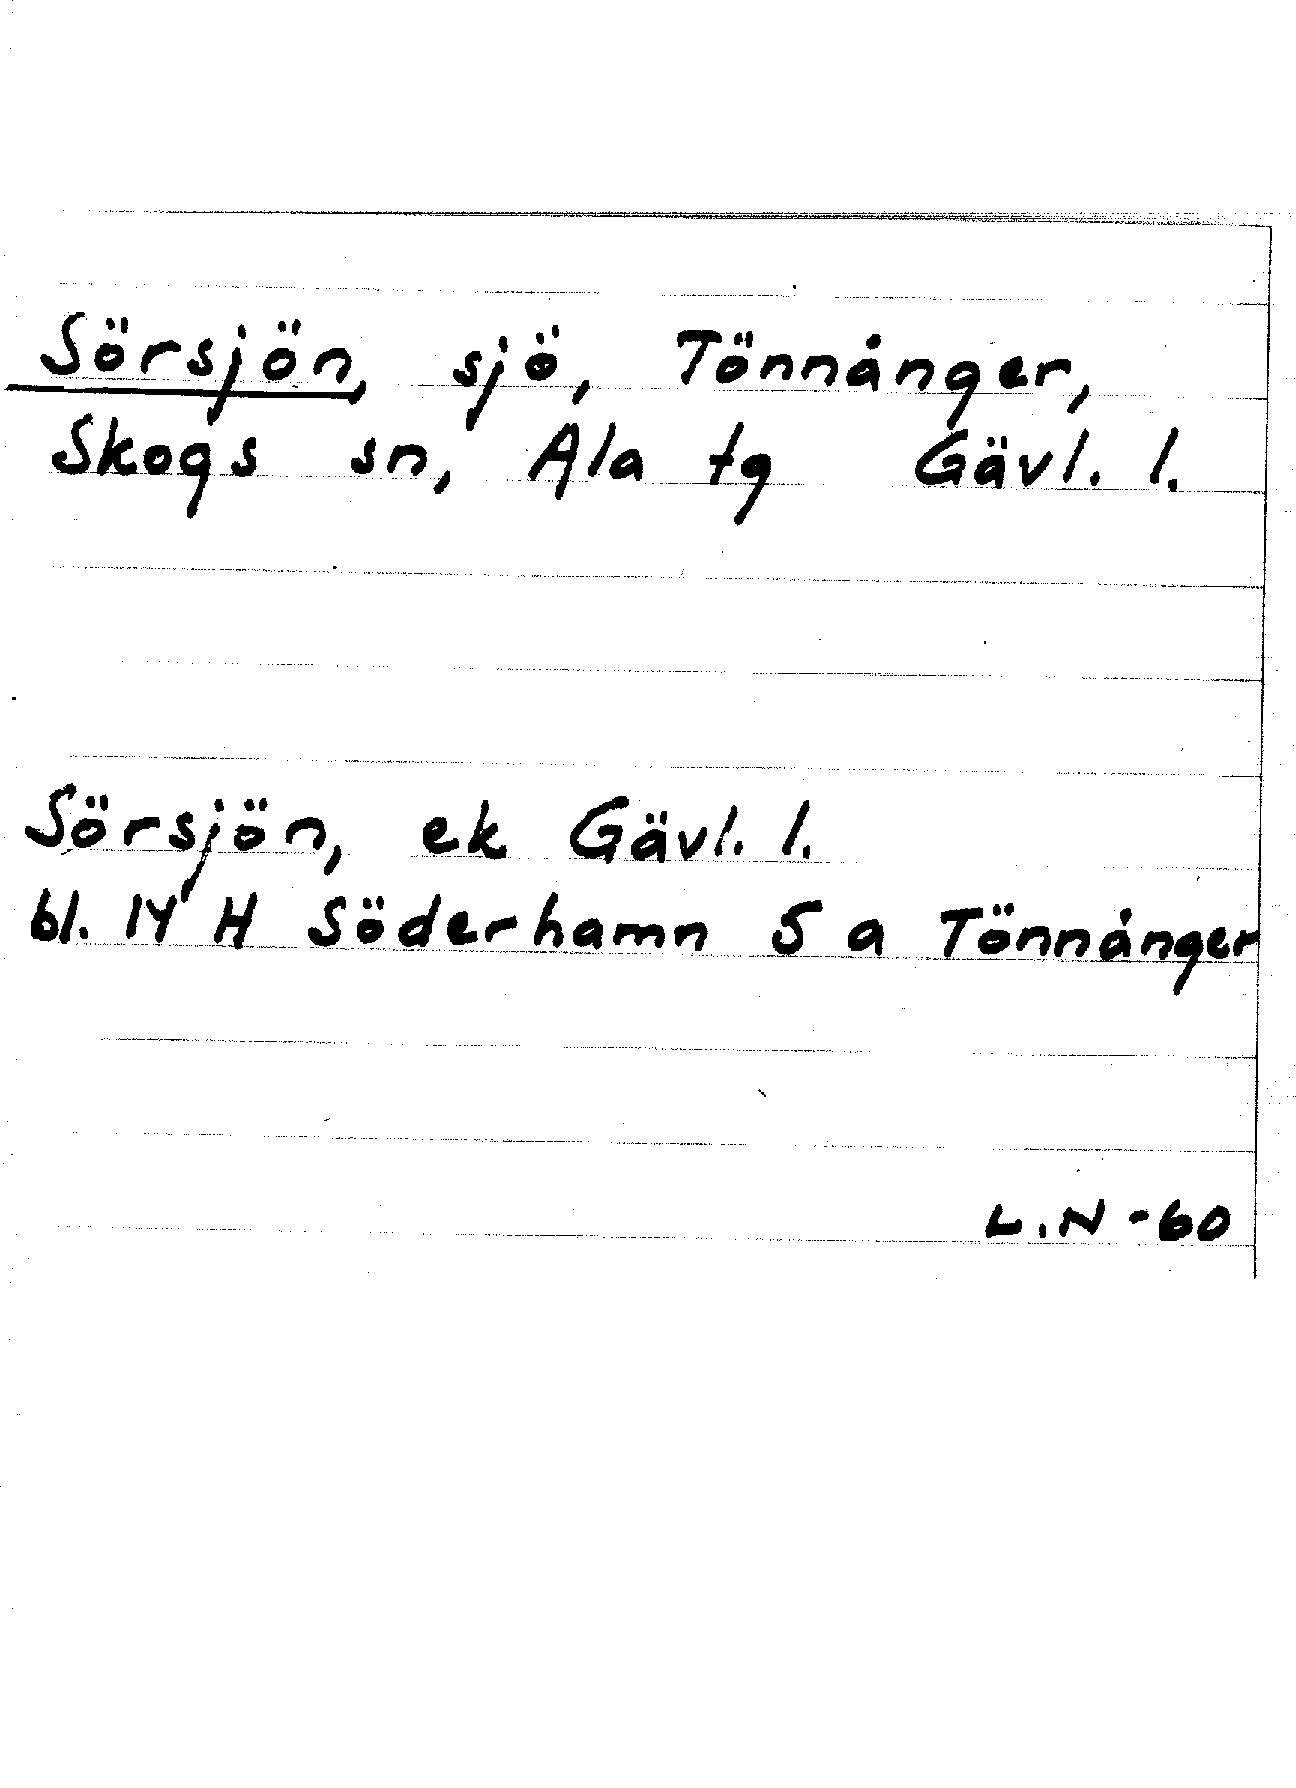 Sörsjön, sjö, Tönnånger,
Skogs sn, Ala tg Gävl. l.
Sörsjön, ek Gävl. l.
bl. 14 H Söderhamn 5 a Tönnånger
L.N -60